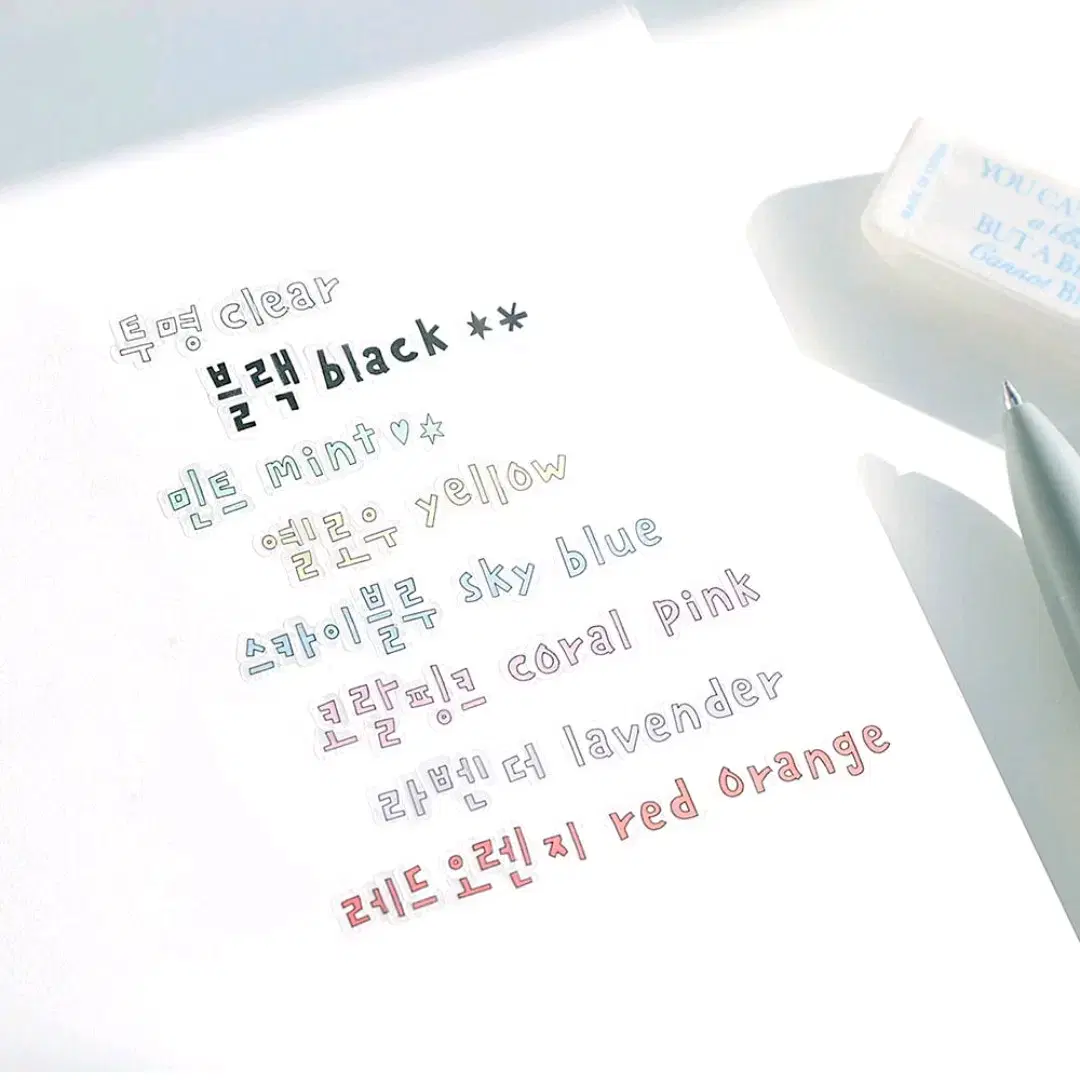 투명 clear
블랙 black **
민트 mint♡*
옐로우 yellow
스카이블루 sky blue
코랄핑크 coral pink
라벤더 lavender
레드오렌지 red orange
YOU CA
BUT A B
Cannot B